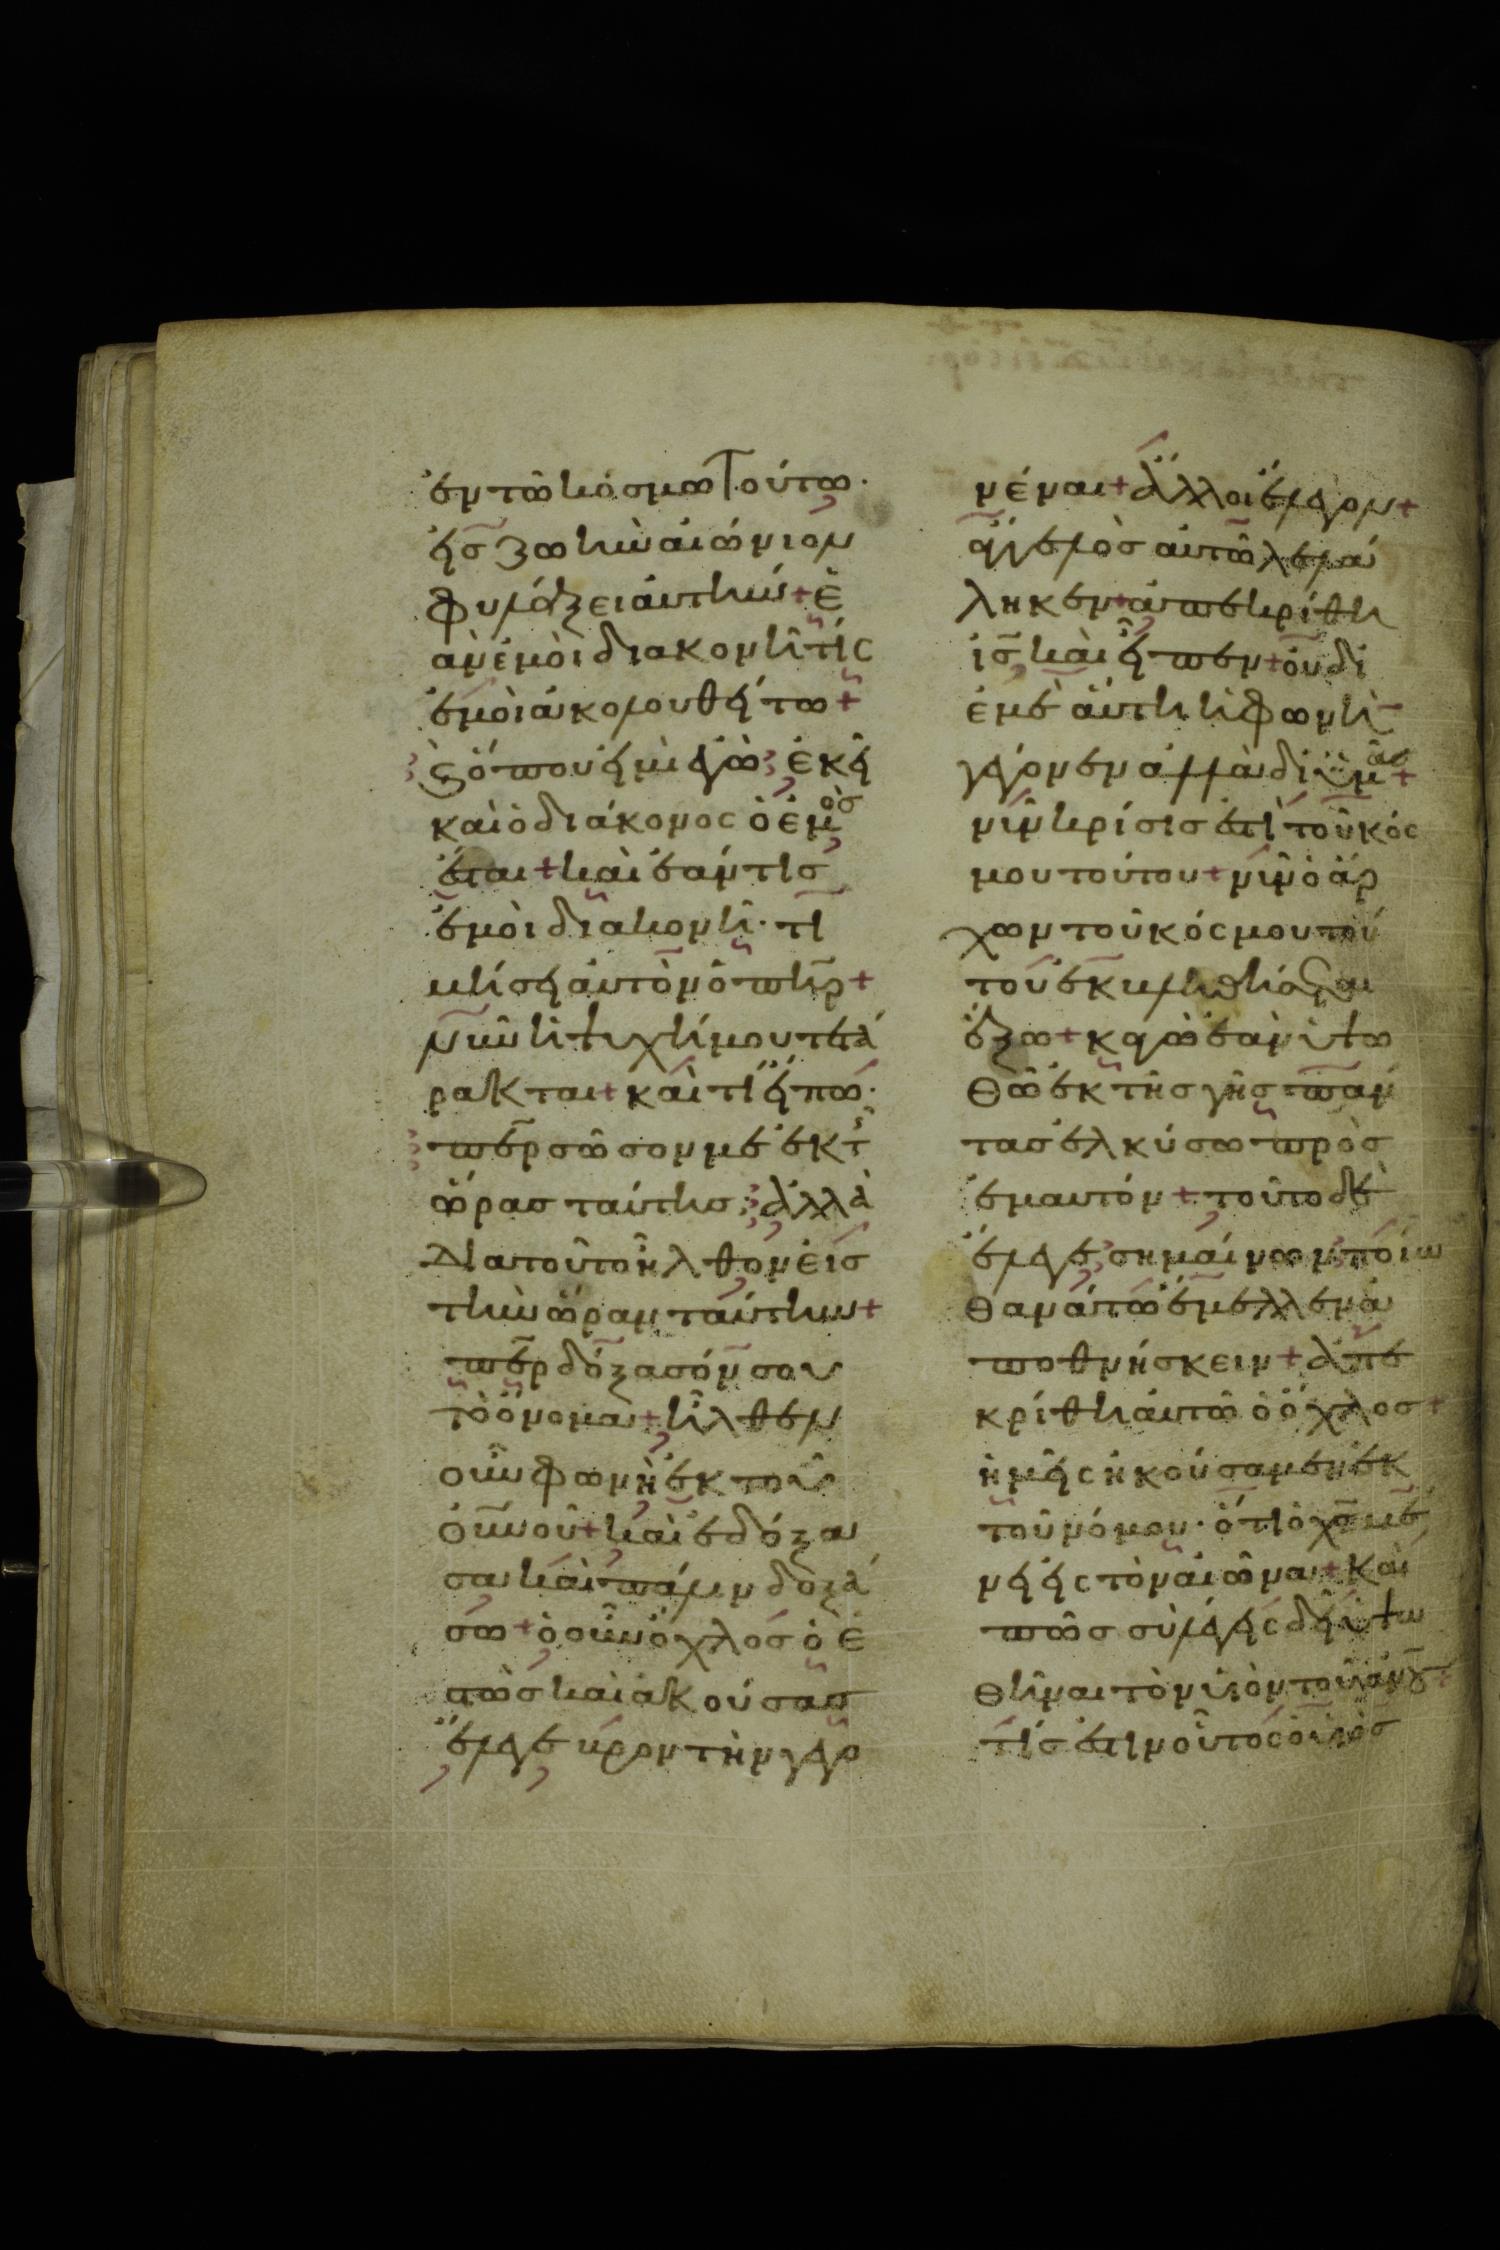 ἐν τῶ κόσμω τούτω·
εἰς ζωὴν αἰώνιον
φυλάξει αὐτήν + ἐ
ὰν ἐμοὶ διακονῆ τίς
ἐμοὶ ἀκολουθείτω +
καὶ ὅπου εἰμὶ ἐγὼ ἐκεῖ
καὶ ὁ διάκονος ὁ ἐμὸς
ἔσται + καὶ ἐάν τις
ἐμοὶ διακονῆ· τι
μήσει αὐτὸν ὁ πηρ +
νῦν ἡ ψυχή μου τετά
ρακται + καὶ τί εἴπω·
περ σῶσον με ἐκ τῆς
ὥρας ταύτης· ἀλλὰ
διατοῦτο ἦλθον εἰς
τὴν ὥραν ταύτην +
περ δόξασόν σου
τὸ ὄνομα + ἦλθεν
οὖν φωνὴ ἐκ τοῦ
οὐνοῦ + καὶ ἐδόξα
σα καὶ πάλιν δοξά
σω + ὁ οὖν ὄχλος ὁ ἑ
στὼς καὶ ἀκούσας
ἔλεγεν βροντὴν γεγο
νέναι + ἄλλοι ἔλεγον +
ἄγγελος αὐτῶ λελά
ληκεν + ἀπεκρίθη
ις καὶ εἶπεν + οὐ δι
ἐμὲ αὕτη ἡ φωνὴ
γέγονεν ἀλλὰ δι ὑμᾶς +
νῦν κρίσις ἐστὶ τοῦ κόσ
μου τούτου + νῦν ὁ ἄρ
χων τοῦ κόσμου τού
του ἐκβληθήσεται
ἔξω + κἀγὼ ἐὰν ὑψω
θῶ ἐκ τῆς γῆς πάν
τας ἑλκύσω πρὸς
ἐμαυτόν + τοῦτο δὲ
ἔλεγε σημαίνων ποίω
θανάτω ἔμελλεν ἀ
ποθνήσκειν + ἀπε
κρίθη αὐτῶ ὁ ὄχλος +
ἡμεῖς ἠκούσαμεν ἐκ
τοῦ νόμου· ὅτι ὁ χς μέ
νει εἰς τὸν αἰῶνα + καὶ
πῶς σὺ λέγεις δεῖ ὑψω
θῆναι τὸν υἱὸν τοῦ ἀνου +
τίς ἐστιν οὗτος ὁ υἱὸς